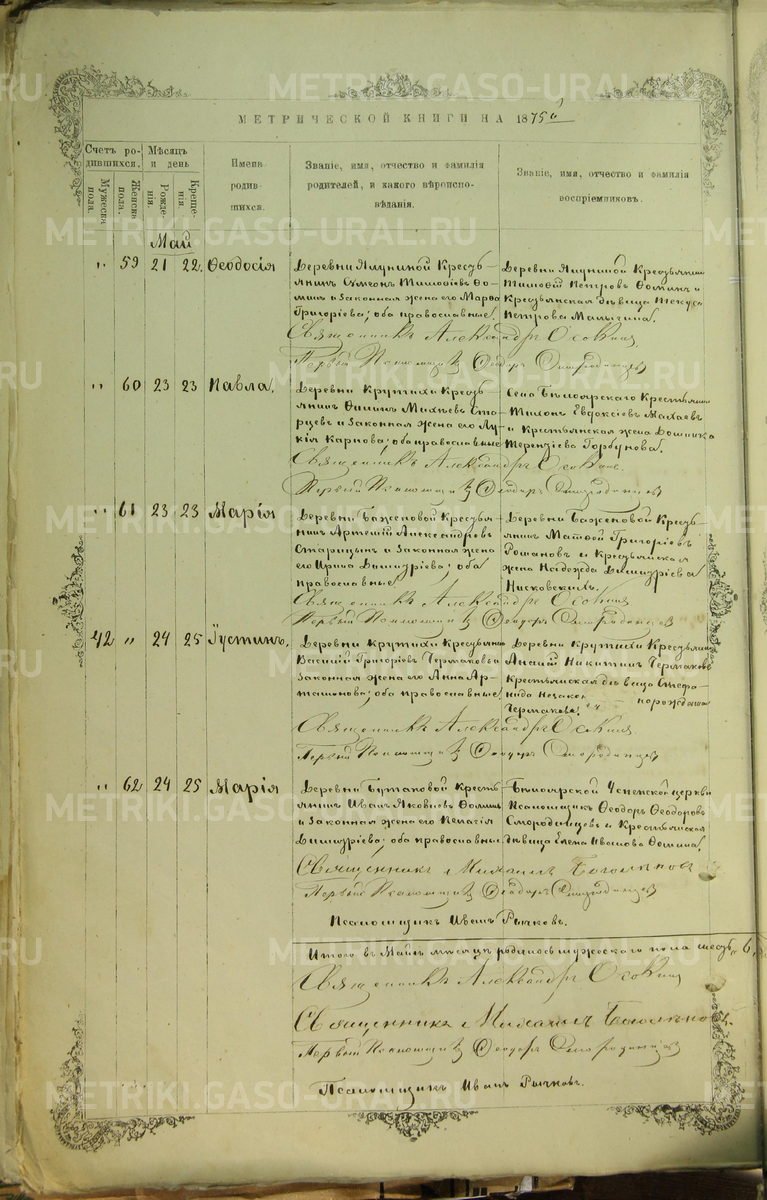 МЕТРИЧЕСКОЙ КНИГИ НА 1875 й
Счетъ родившихся.
Мѣсяцъ и день
Имена родившихся.
Званіе, имя, отчество и фамилія родителей, и какого вѣроисповѣданія.
Званіе, имя, отчество и фамилія воспріемниковъ.
Мужеска пола.
Женска пола.
Рожденія.
Крещенія
Май
" 59 21 22. Ѳеодосія
Деревни Ялуниной Крестьянинъ Симеонъ Тимоѳіевъ Ѳоминъ и законная жена его Марѳа Григоріева; оба православные.
Деревни Ялуниной Крестьянинъ Тимоѳей Петровъ Ѳоминъ и Крестьянская дѣвица Текуса Петрова Малыгина.
Священникъ Александръ Осокинъ
Первый Псаломщикъ Ѳеодоръ Смородинцевъ
" 60 23 23 Павла.
Деревни Крутихи Крестьянинъ Филипъ Михѣевъ Старцевъ и законная жена его Лукія Карпова; оба православные
Села Бѣлоярскаго Крестьянинъ Тихонъ Евдокіевъ Махаевъ и Крестьянская жена Домника Терентіева Горбунова.
Священникъ Александръ Осокинъ.
Первый Псаломщикъ Ѳеодоръ Смородинцевъ
" 61 23 23 Марія
Деревни Баженовой Крестьянинъ Артемій Александровъ Старицынъ и законная жена его Ирина Димитріева; оба православные
Деревни Баженовой Крестьянинъ Матѳей Григоріевъ Романовъ и Крестьянская жена Надежда Димитріева Нисковскихъ.
Священникъ Александръ Осокинъ
Первый Псаломщикъ Ѳеодоръ Смородинцевъ
42 " 24 25 Іустинъ.
Деревни Крутихи Крестьянинъ Василій Григоріевъ Чермаковъ и законная жена его Анна Артамонова; оба православные.
Деревни Крутихи Крестьянинъ Ананій Никитинъ Чермаковъ Крестьянская дѣвица Стефанида Чермакова.
Священникъ Александръ Осокинъ
Первый Псаломщикъ Ѳеодоръ Смородинцевъ
" 62 24 25 Марія
Деревни Бутаковой Крестьянинъ Иванъ Яковлевъ Ѳоминъ и законная жена его Пелагія Димитріева; оба православные
Бѣлоярской Успенской церкви Псаломщикъ Ѳеодоръ Ѳеодоровъ Смородинцевъ и Крестьянская дѣвица Елена Иванова Ѳомина.
Священникъ Михаилъ Боголѣповъ
Первый Псаломщикъ Ѳеодоръ Смородинцевъ
Псаломщикъ Иванъ Рычковъ.
Итого въ Маѣ мѣсяцѣ родилось мужескаго пола шесть 6.
Священникъ Александръ Осокинъ
Священникъ Михаилъ Боголѣповъ.
Первый Псаломщикъ Ѳеодоръ Смородинцевъ
Псаломщикъ Иванъ Рычковъ.
METRIKI.GASO-URAL.RU